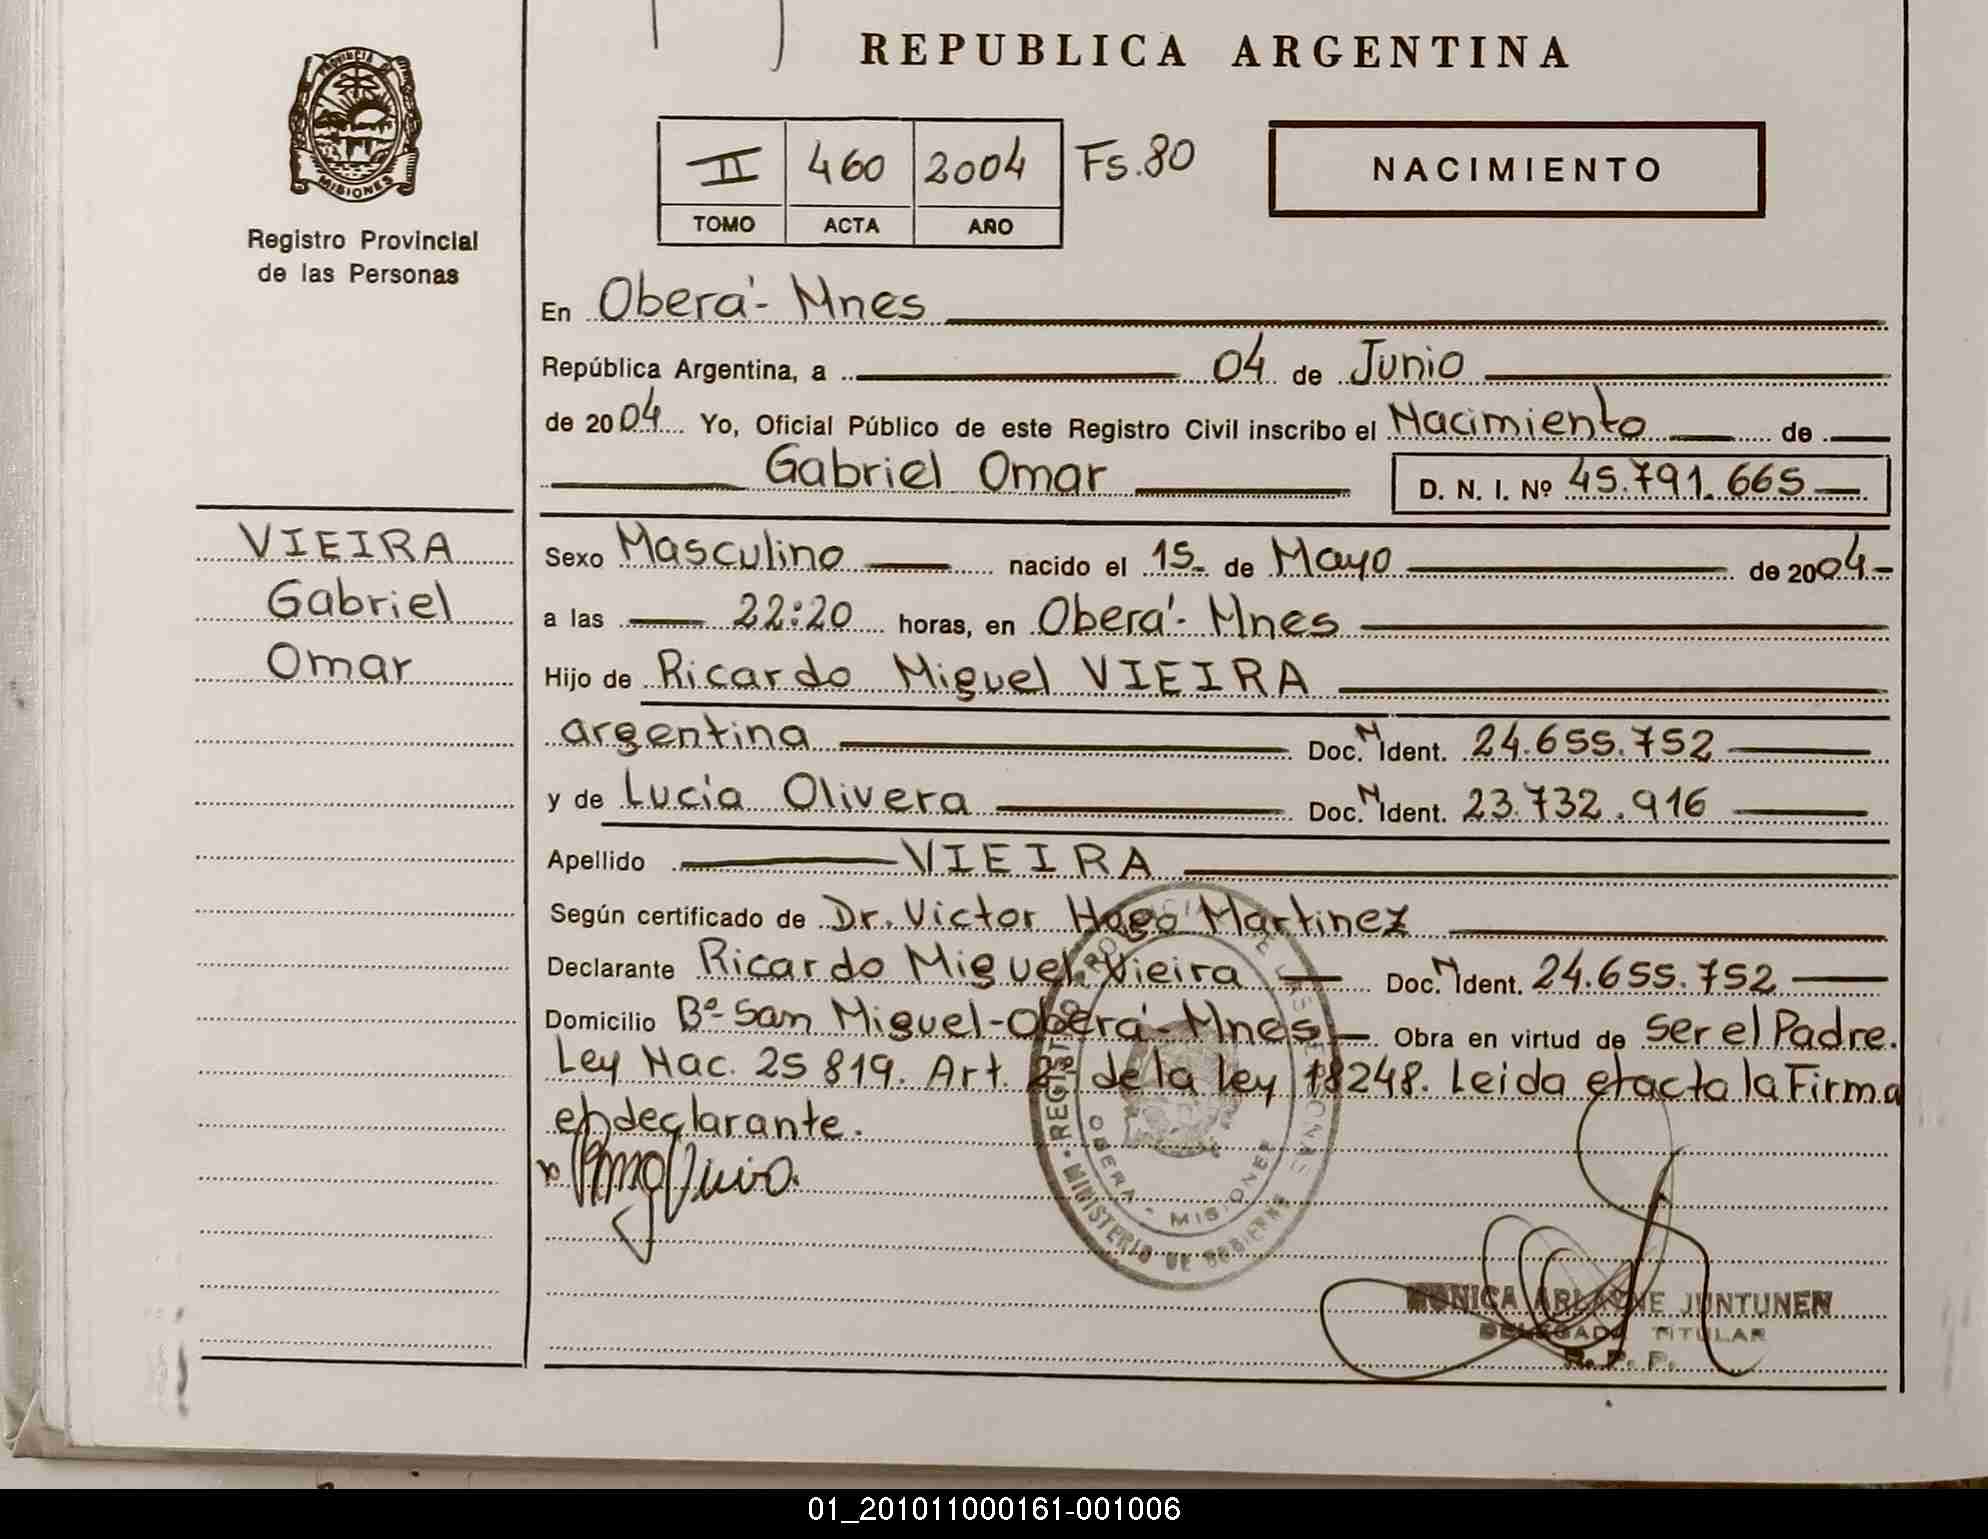 REPUBLICA ARGENTINA
PROVINCIA DE
MISIONES
Registro Provincial
de las Personas
II 460 2004 Fs.80
TOMO ACTA AÑO
NACIMIENTO
En Oberá - Mnes
República Argentina, a 04 de Junio
de 2004 Yo, Oficial Público de este Registro Civil inscribo el Nacimiento de
Gabriel Omar D. N. I. Nº 45.791.665
VIEIRA
Gabriel
Omar
Sexo Masculino nacido el 15 de Mayo de 2004
a las 22:20 horas, en Oberá - Mnes
Hijo de Ricardo Miguel VIEIRA
argentina Doc. N Ident. 24.655.752
y de Lucia Olivera Doc. N Ident. 23.732.916
Apellido VIEIRA
Según certificado de Dr. Victor Hugo Martinez
Declarante Ricardo Miguel Vieira Doc. N Ident. 24.655.752
Domicilio Bº San Miguel - Oberá - Mnes Obra en virtud de ser el Padre.
Ley Nac. 25819. Art. 2º de la ley 18248. Leida el acta la Firma
el declarante.
REGISTRO PROVINCIAL DE LAS PERSONAS
OBERA - MISIONES
MINISTERIO DE GOBIERNO
MONICA JUNTUNEN
DELEGADA TITULAR
R. P. P.
01_201011000161-001006